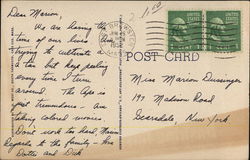 Dear Marion,
We are having the
time of our lives. Am
trying to cultivate a
tan but keep peeling
every time I turn
around. The Ape is
just tremendous - am
taking colored movies.
Don't work too hard,
Regards to the family - Love
Dottie and Dick
POST CARD
Miss Marion Dussinger
197 Madison Road
Scarsdale, New York